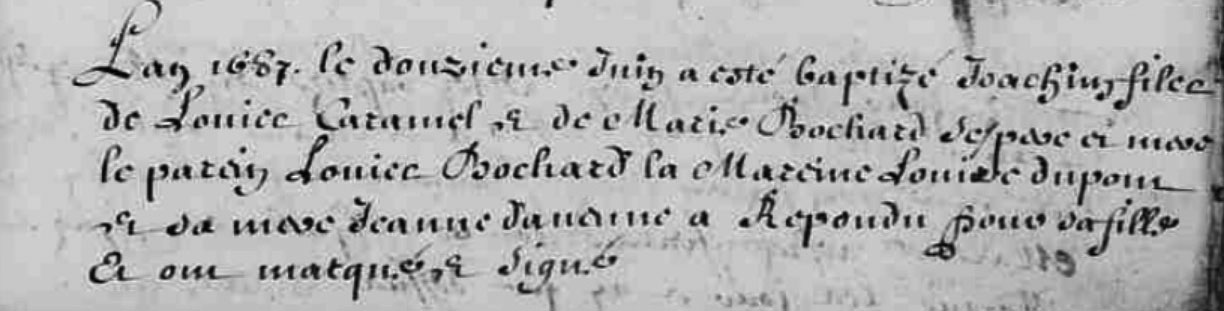 Lan 1687. le douzieme Juin a esté baptizé Joachin filce
de Louice Caramel & de Marie Bochard ses pere et mere
le parein Louice Bochard la Mareine Louise dupont
et sa mere Jeanne a Repondu pour sa fille
Et ont marqué & signé